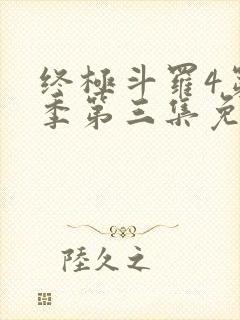 终極斗羅4第
季第三集免
陸久之